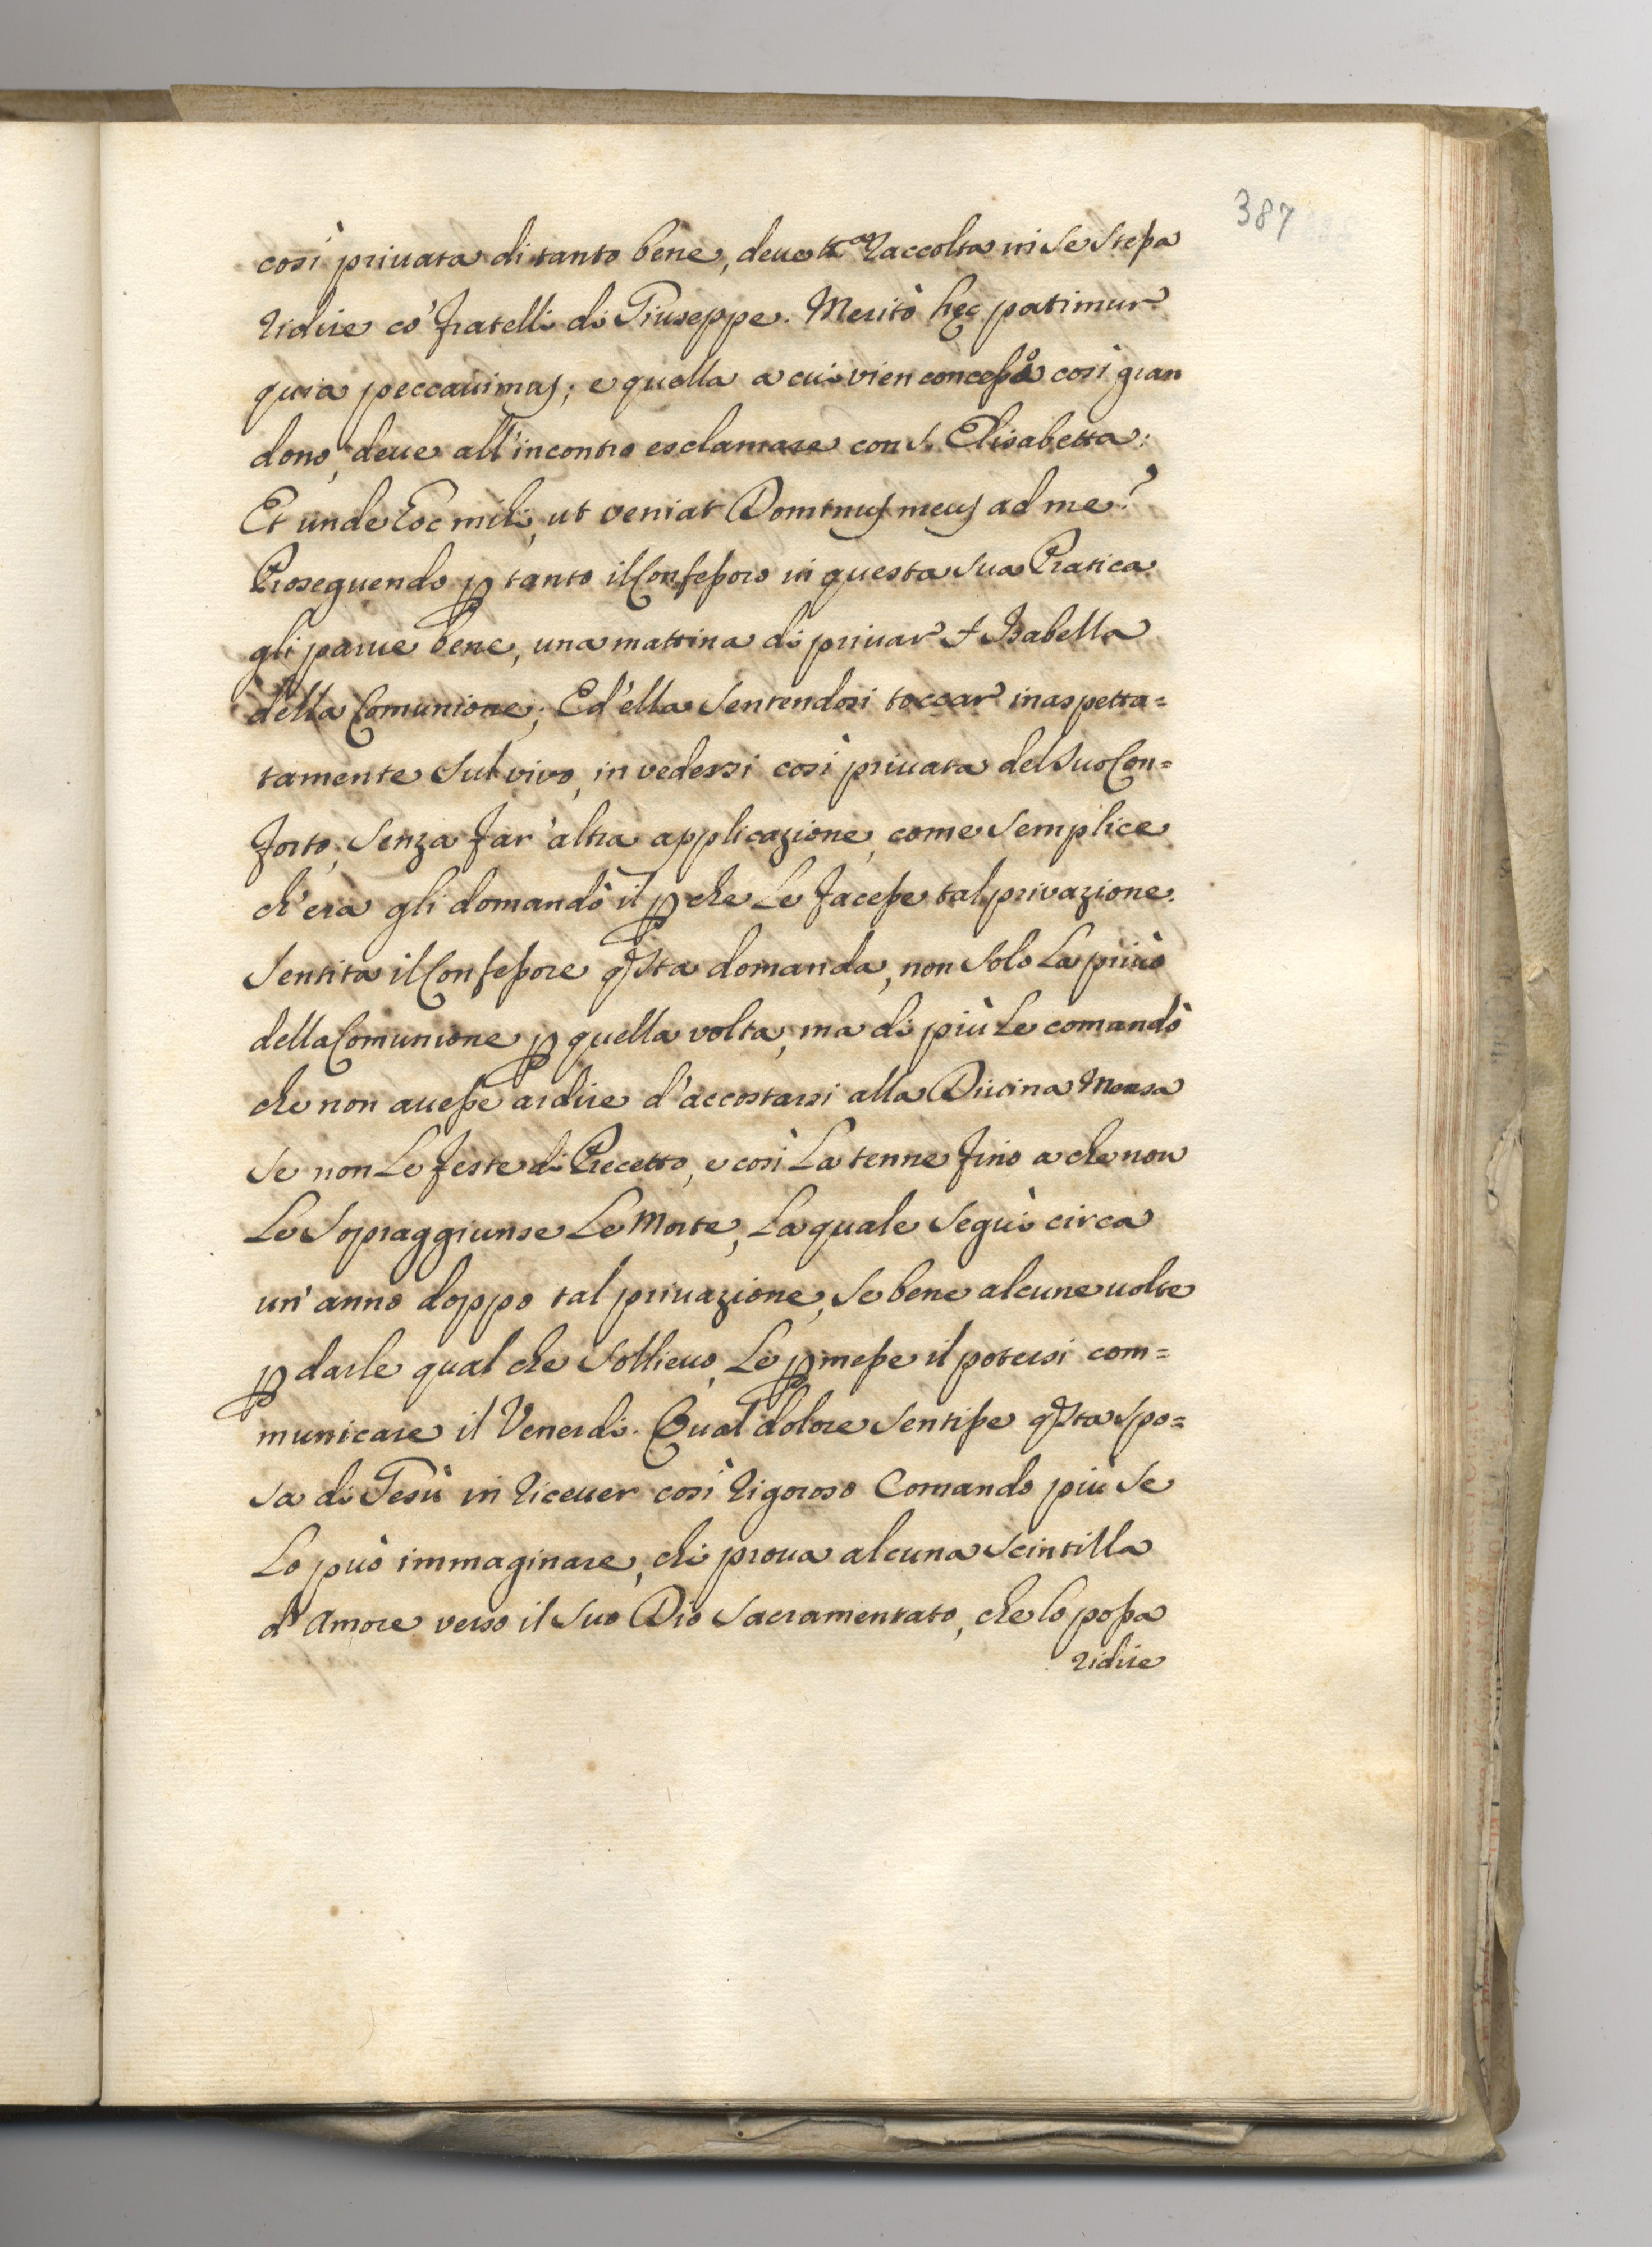 387
così priuata di tanto bene, deue tt.ª raccolta in se stessa
ridire co' fratelli di Giuseppe. Meritò hęc patimur
quia peccauimus; e quella a cui vien concesso così gran
dono, deue all'incontro esclamare con S. Elisabetta:
Et unde hoc mihi, ut veniat Dominus meus ad me?
Proseguendo ꝑ tanto il Confessoro in questa sua Pratica
gli parue bene, una mattina di priuar S. Isabella
della Comunione; Ed'ella sentendosi toccar inaspetta=
tamente sul vivo, in vedersi così priuata del suo Con=
forto, senza far'altra applicazione, come semplice
ch'era gli domandò il ꝑche le facesse tal privazione.
Sentita il Confessore qsta domanda, non solo la priuò
della Comunione ꝑ quella volta, ma di più le comandò
che non auesse ardire d'accostarsi alla Diuina Mensa
se non le feste di Precetto, e così la tenne fino a che non
le sopraggiunse le Morte, la quale seguì circa
un'anno doppo tal priuazione, se bene alcune uolte
ꝑ darle qual che sollieuo, le ꝑmesse il potersi com=
municare il Venerdì. Qual dolore sentisse qsta spo=
sa di Giesù in riceuer così rigoroso Comando più se
lo può immaginare, chi proua alcuna scintilla
d'Amore verso il suo Dio Sacramentato, che lo possa
ridire